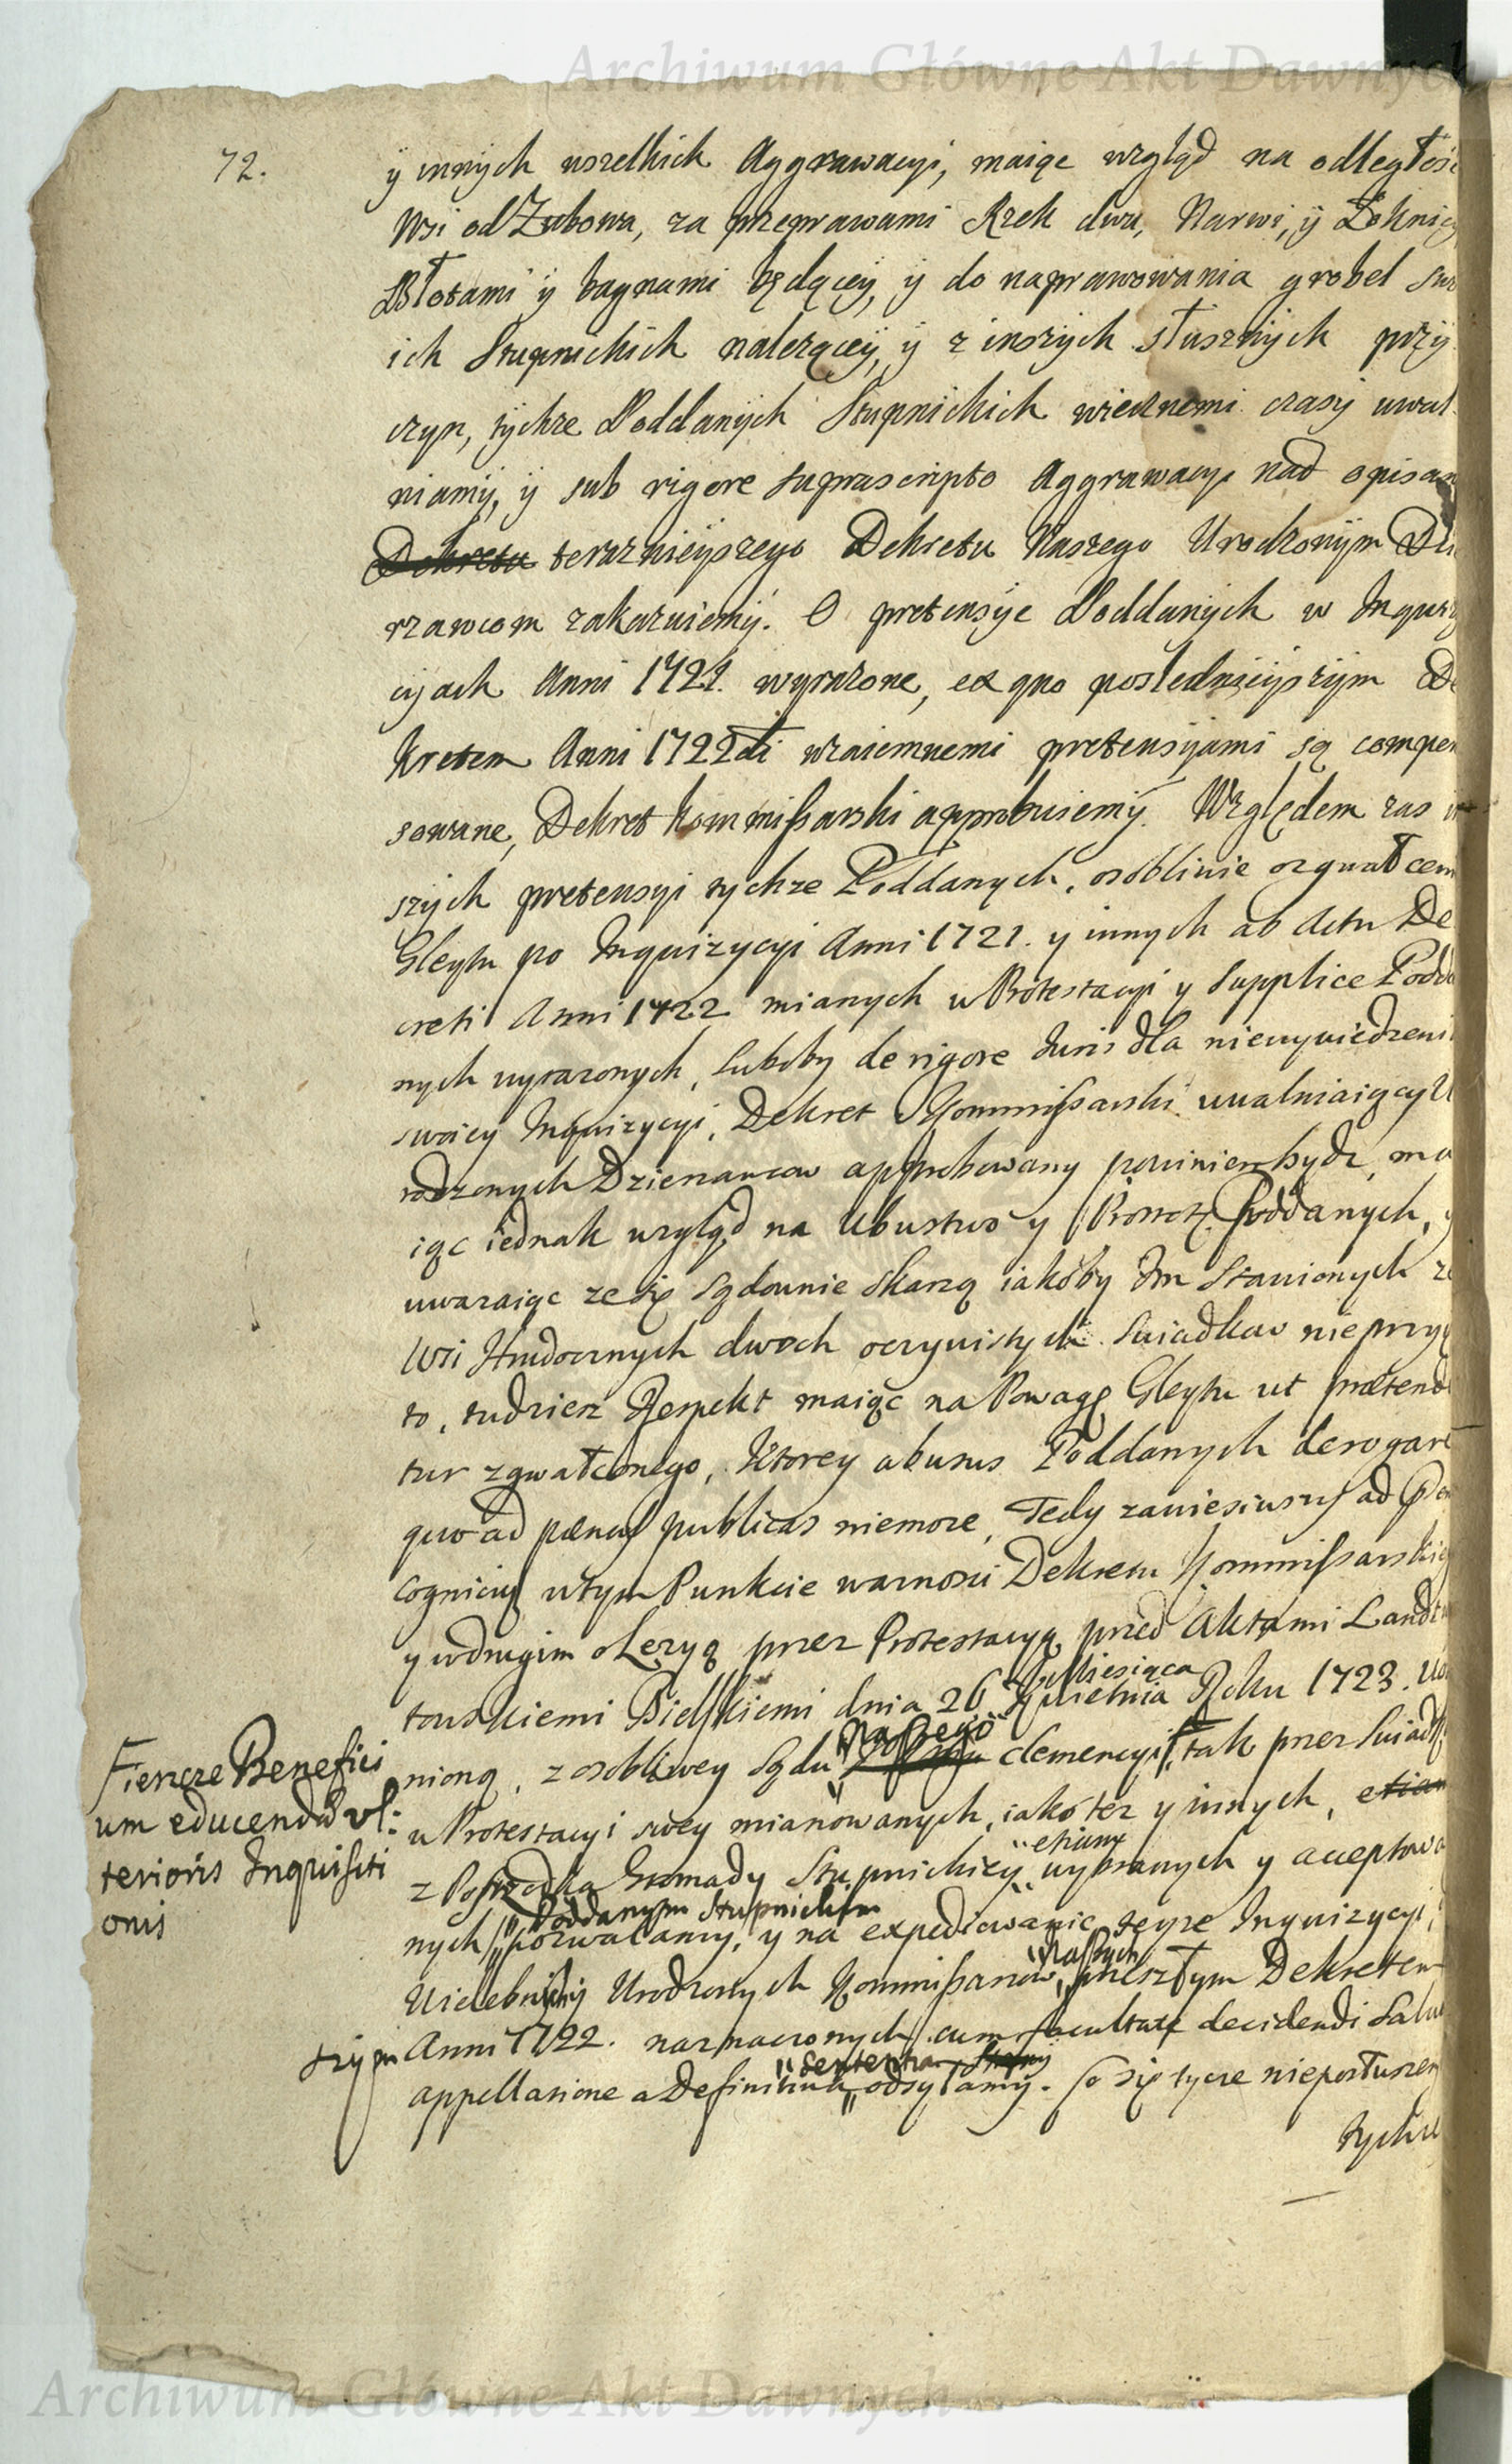 Archiwum Główne Akt Dawnych
72.
ÿ innych wszelkich Aggrawacyi, maiąc wzgląd na odległosc
Wsi od Zubowa, za przeprawami Rzek dwu, Narwi, ÿ Loknicy
Błotami ÿ bagnami będącey, ÿ do naprawowania grobel swo
ich Stupnickich nalezącey, ÿ z inszÿch słusznÿch przÿ
czyn, tÿchze Poddanÿch Stupnickich wiecznemi czasÿ uwal
niamÿ, ÿ sub rigore suprascripto Aggrawacyi nad opisan
Dekretu teraznieÿszego Dekretu Naszego Urodzonÿm Dzie
rzawcom zakazuiemÿ. O pretensÿe Poddanÿch w Inquizÿ
cÿach Anni 1721. wyrazone, ex quo poslednieÿszÿm De
kretem Anni 1722di wzaiemnemi pretensÿami są compen
sowane, Dekret Kommissarski approbuiemÿ. Względem zas in
szych pretensyi tychze Poddanych, osobliwie o zgwałceni
Gleytu po Inquizycyi Anni 1721. y innych ab actu De
creti Anni 1722 mianych w Protestacyi y Supplice Podda
nych wyrazonych, luboby de rigore Juris dla niewywiedzeni
swoiey Inquizycyi, Dekret Kommissarski uwalniaiący U
rodzonych Dzierzawcow approbowany powinien bydz, ma
iąc iednak wzgląd na Ubustwo y Prostotę Poddanych, y
uwazaiąc ze się sądownie skarzą iakoby Im stawionych ze
Wsi dwoch oczywistych swiadkow nieprzyię
to, tudziesz Respekt maiąc na Powagę Gleytu ut prætendi
tur zgwałconego, ktorey abusus Poddanych derogare
quo ad pœnas publicas niemoze, Tedy zawiesiwszy ad
cognicią w tym Punkcie warnosci Dekretu Kommissarskie
y w drugim o Lezyą przez Protestacyą przed Aktami Landw
towskiemi Bielskiemi dnia 26 Miesiąca Kwietnia Roku 1723. uczy
nioną, z osobliwey Sądu Naszego clemencyi, tak przez Swiadk
w Protestacyi swey mianowanych, iako tez y innych, etiam
z Posrzodka Gromady Stupnickiey etiam wybranych y acceptowa
nych Poddanym Stupnickim pozwalamy, y na expediowanie teyze Inquizycyi,
Wielebnych y Urodzonych Kommissarzow Naszych przeszłym Dekretem
Anni 1722. naznaczonych cum facultate decidendi salva
appellatione a Definitiva sententia odsyłamy. Co się tycze nieposłuszen
tychze
Fierzcze Benefici
um educendæ vl:
terioris Inquisiti
onis
Archiwum Główne Akt Dawnych